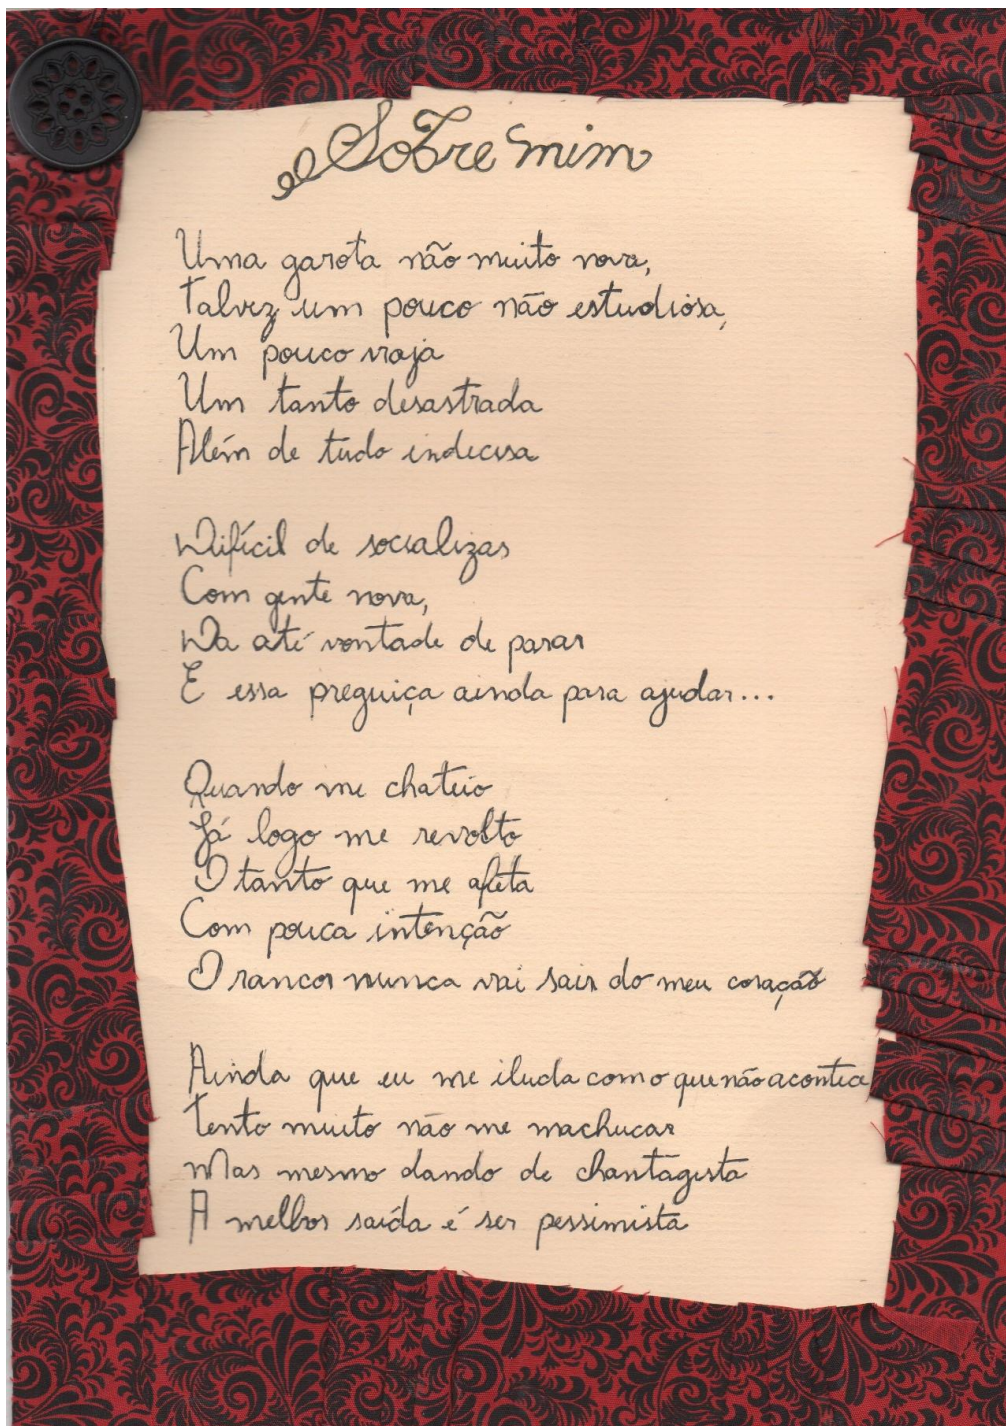 Sobre mim
Uma garota não muito nova,
Talvez um pouco não estudiosa,
Um pouco
Um tanto desastrada
Além de tudo indecisa
Difícil de socializar
Com gente nova,
Da até vontade de parar
E essa preguiça ainda para ajudar...
Quando me chateio
Já logo me revolto
O tanto que me afeta
Com pouca intenção
O rancor nunca vai sair do meu coração
Ainda que eu me iluda com o que não acontece
Tento muito não me machucar
Mas mesmo dando de chantagista
A melhor saída é ser pessimista